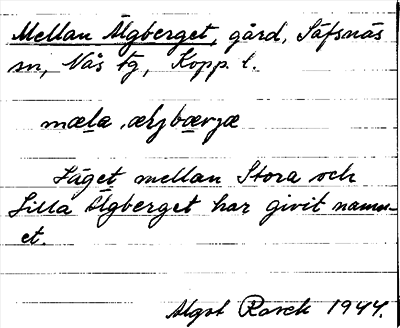 Mellan Älgberget, gård, Säfsnäs
sn, Nås tg, Kopp. l.
Läget mellan Stora och
Lilla Älgberget har givit namn-
et.
Algot Rosck 1944.